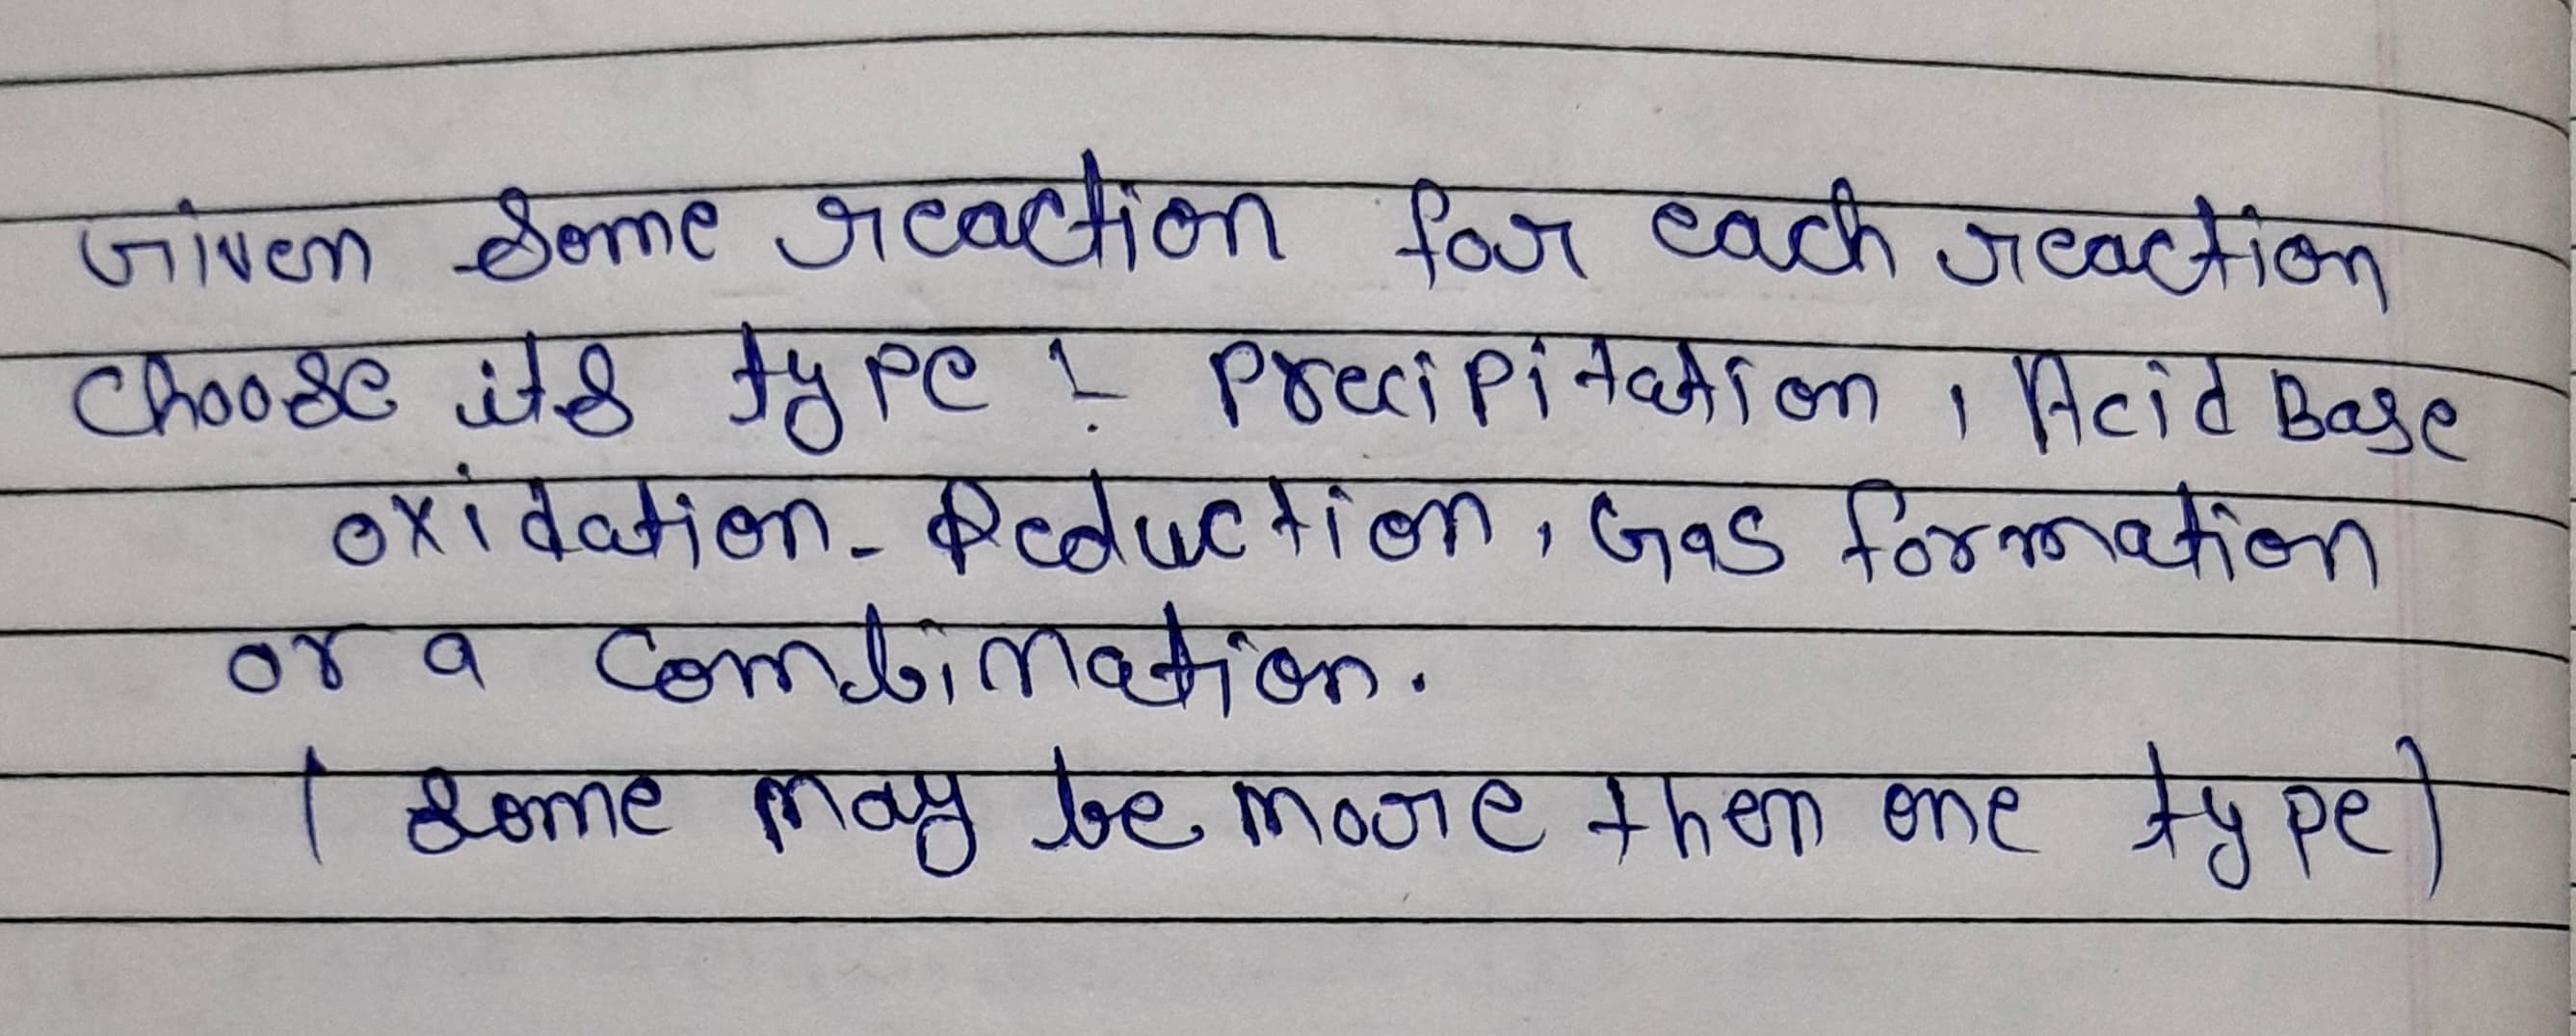 Given some reaction for each reaction
choose its type :- Precipitation, Acid Base
oxidation - Reduction, Gas formation
or a Combination.
(some may be more then one type)